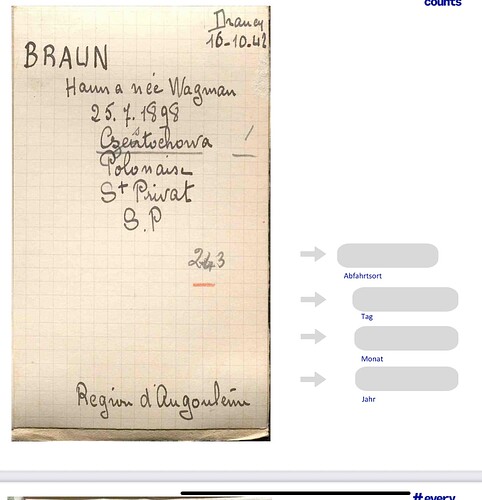 counts
Drancy
16-10.42
BRAUN
Hanna née Wagman
25.7.1898
Częstochowa
/
Polonaise
St Privat
S.P
243
Abfahrtsort
Tag
Monat
Jahr
Region d'Angoulême
#every